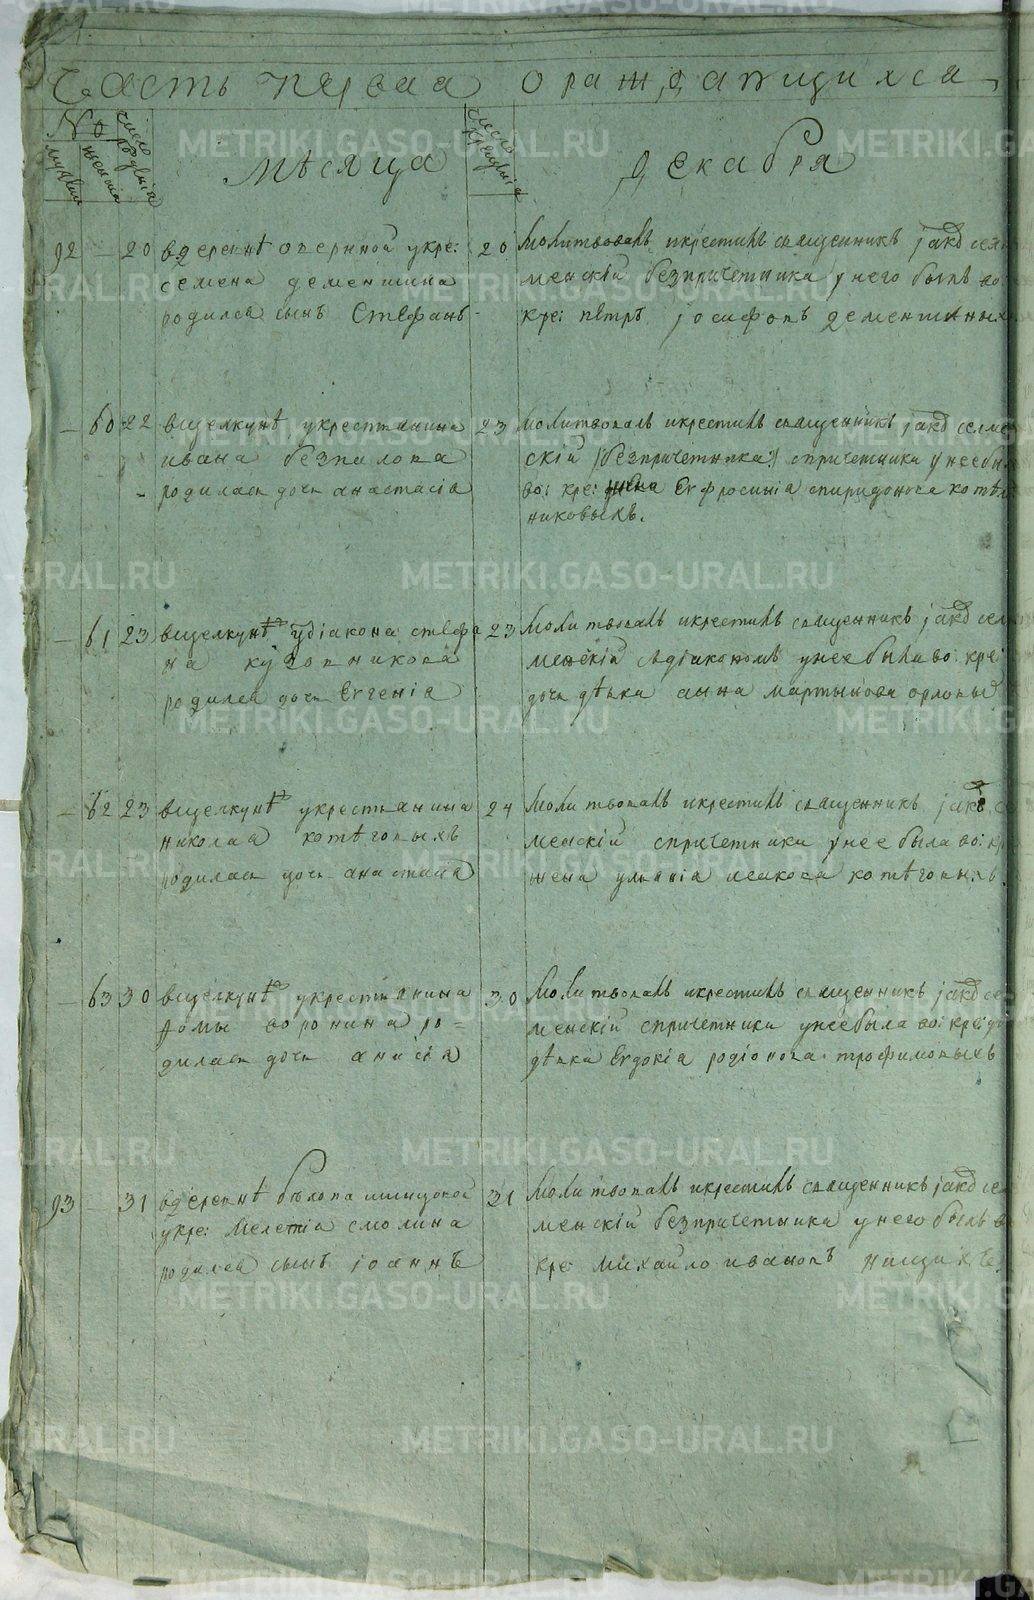 Часть первая о раждающихся
№
мужеска
женска
число рождениѧ
Мѣсяца
число крещениѧ
декабря
92 — 20 вдеревнѣ озерной укре:
семена дементина
родился сынъ Стефанъ
20 Молитвовалъ икрестилъ священникъ јаковъ
менскій безпричетника унего былъ во:
кре: пѣтръ јосифовъ дементиныхъ
— 60 22 вщелкунѣ укрестьянина
ивана безпалова
родилась дочь анастасіа
23 Молитвовалъ икрестилъ священникъ јаковъ
скій (безпричетника) спричетники унее
во: кре: Евфросиніа спиридонова
никовыхъ.
— 61 23 вщелкунѣ удіакона стефа
на кузовникова
родилса дочь Евгеніа
23 Молитвовалъ икрестилъ священникъ јаковъ
менскій здіакономъ унее была во: кре:
дочь дѣвка анна мартынова орловы
— 62 23 вщелкунѣ укрестьянина
николаа котѣговыхъ
родилась дочь анастасіа
24 Молитвовалъ икрестилъ священникъ јаковъ
менскій спричетники унее была во:
жена ульяніа котѣговыхъ
— 63 30 вщелкунѣ укрестьянина
фомы воронина ро=
дилась дочь анисіа
30 Молитвовалъ икрестилъ священникъ јаковъ
менскій спричетники унее была во: кре:
дѣвка Евдокіа родіонова трофимовыхъ
93 — 31 вдеревнѣ
укре: Мелетіа смолина
родился сынъ јоаннъ
31 Молитвовалъ икрестилъ священникъ јаковъ
менскій безпричетника унего былъ
кре: михайло ивановъ нищихъ.
METRIKI.GASO-URAL.RU